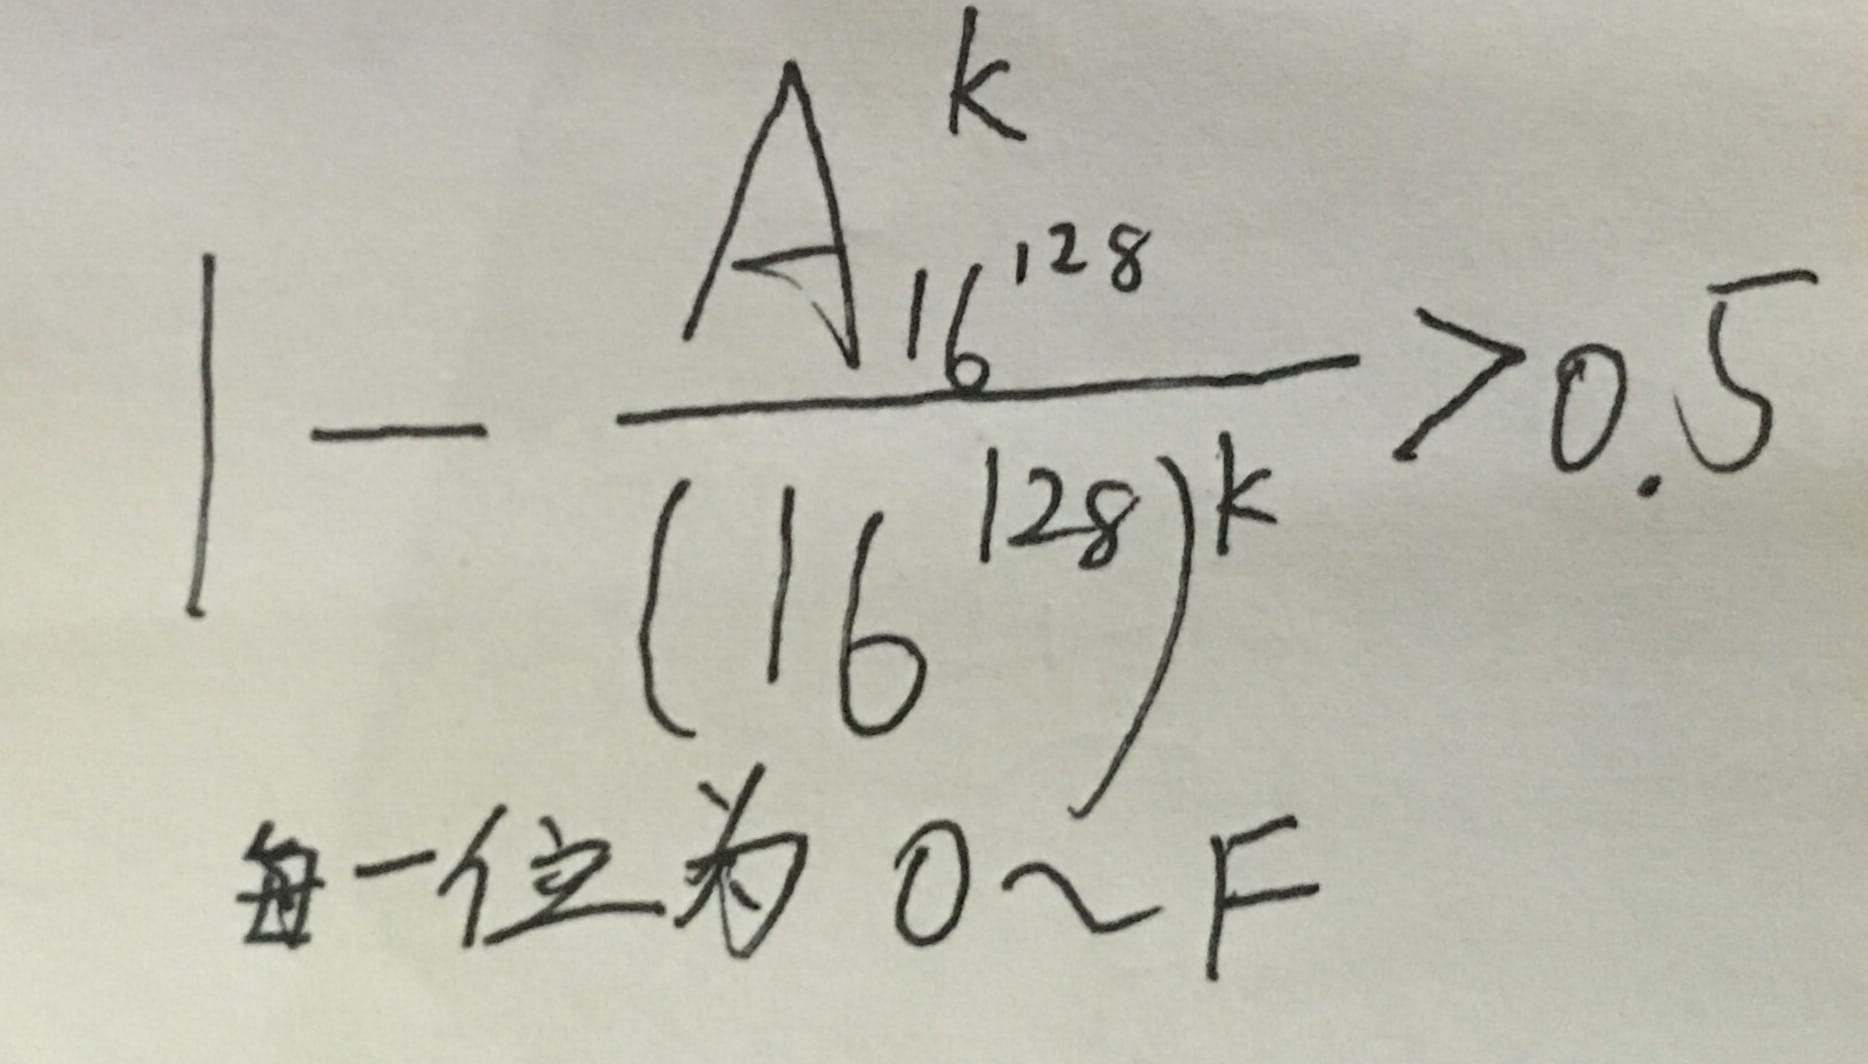 1 - \frac{A_{16^{128}}^{k}}{(16^{128})^{k}} > 0.5
每一位为 0~F